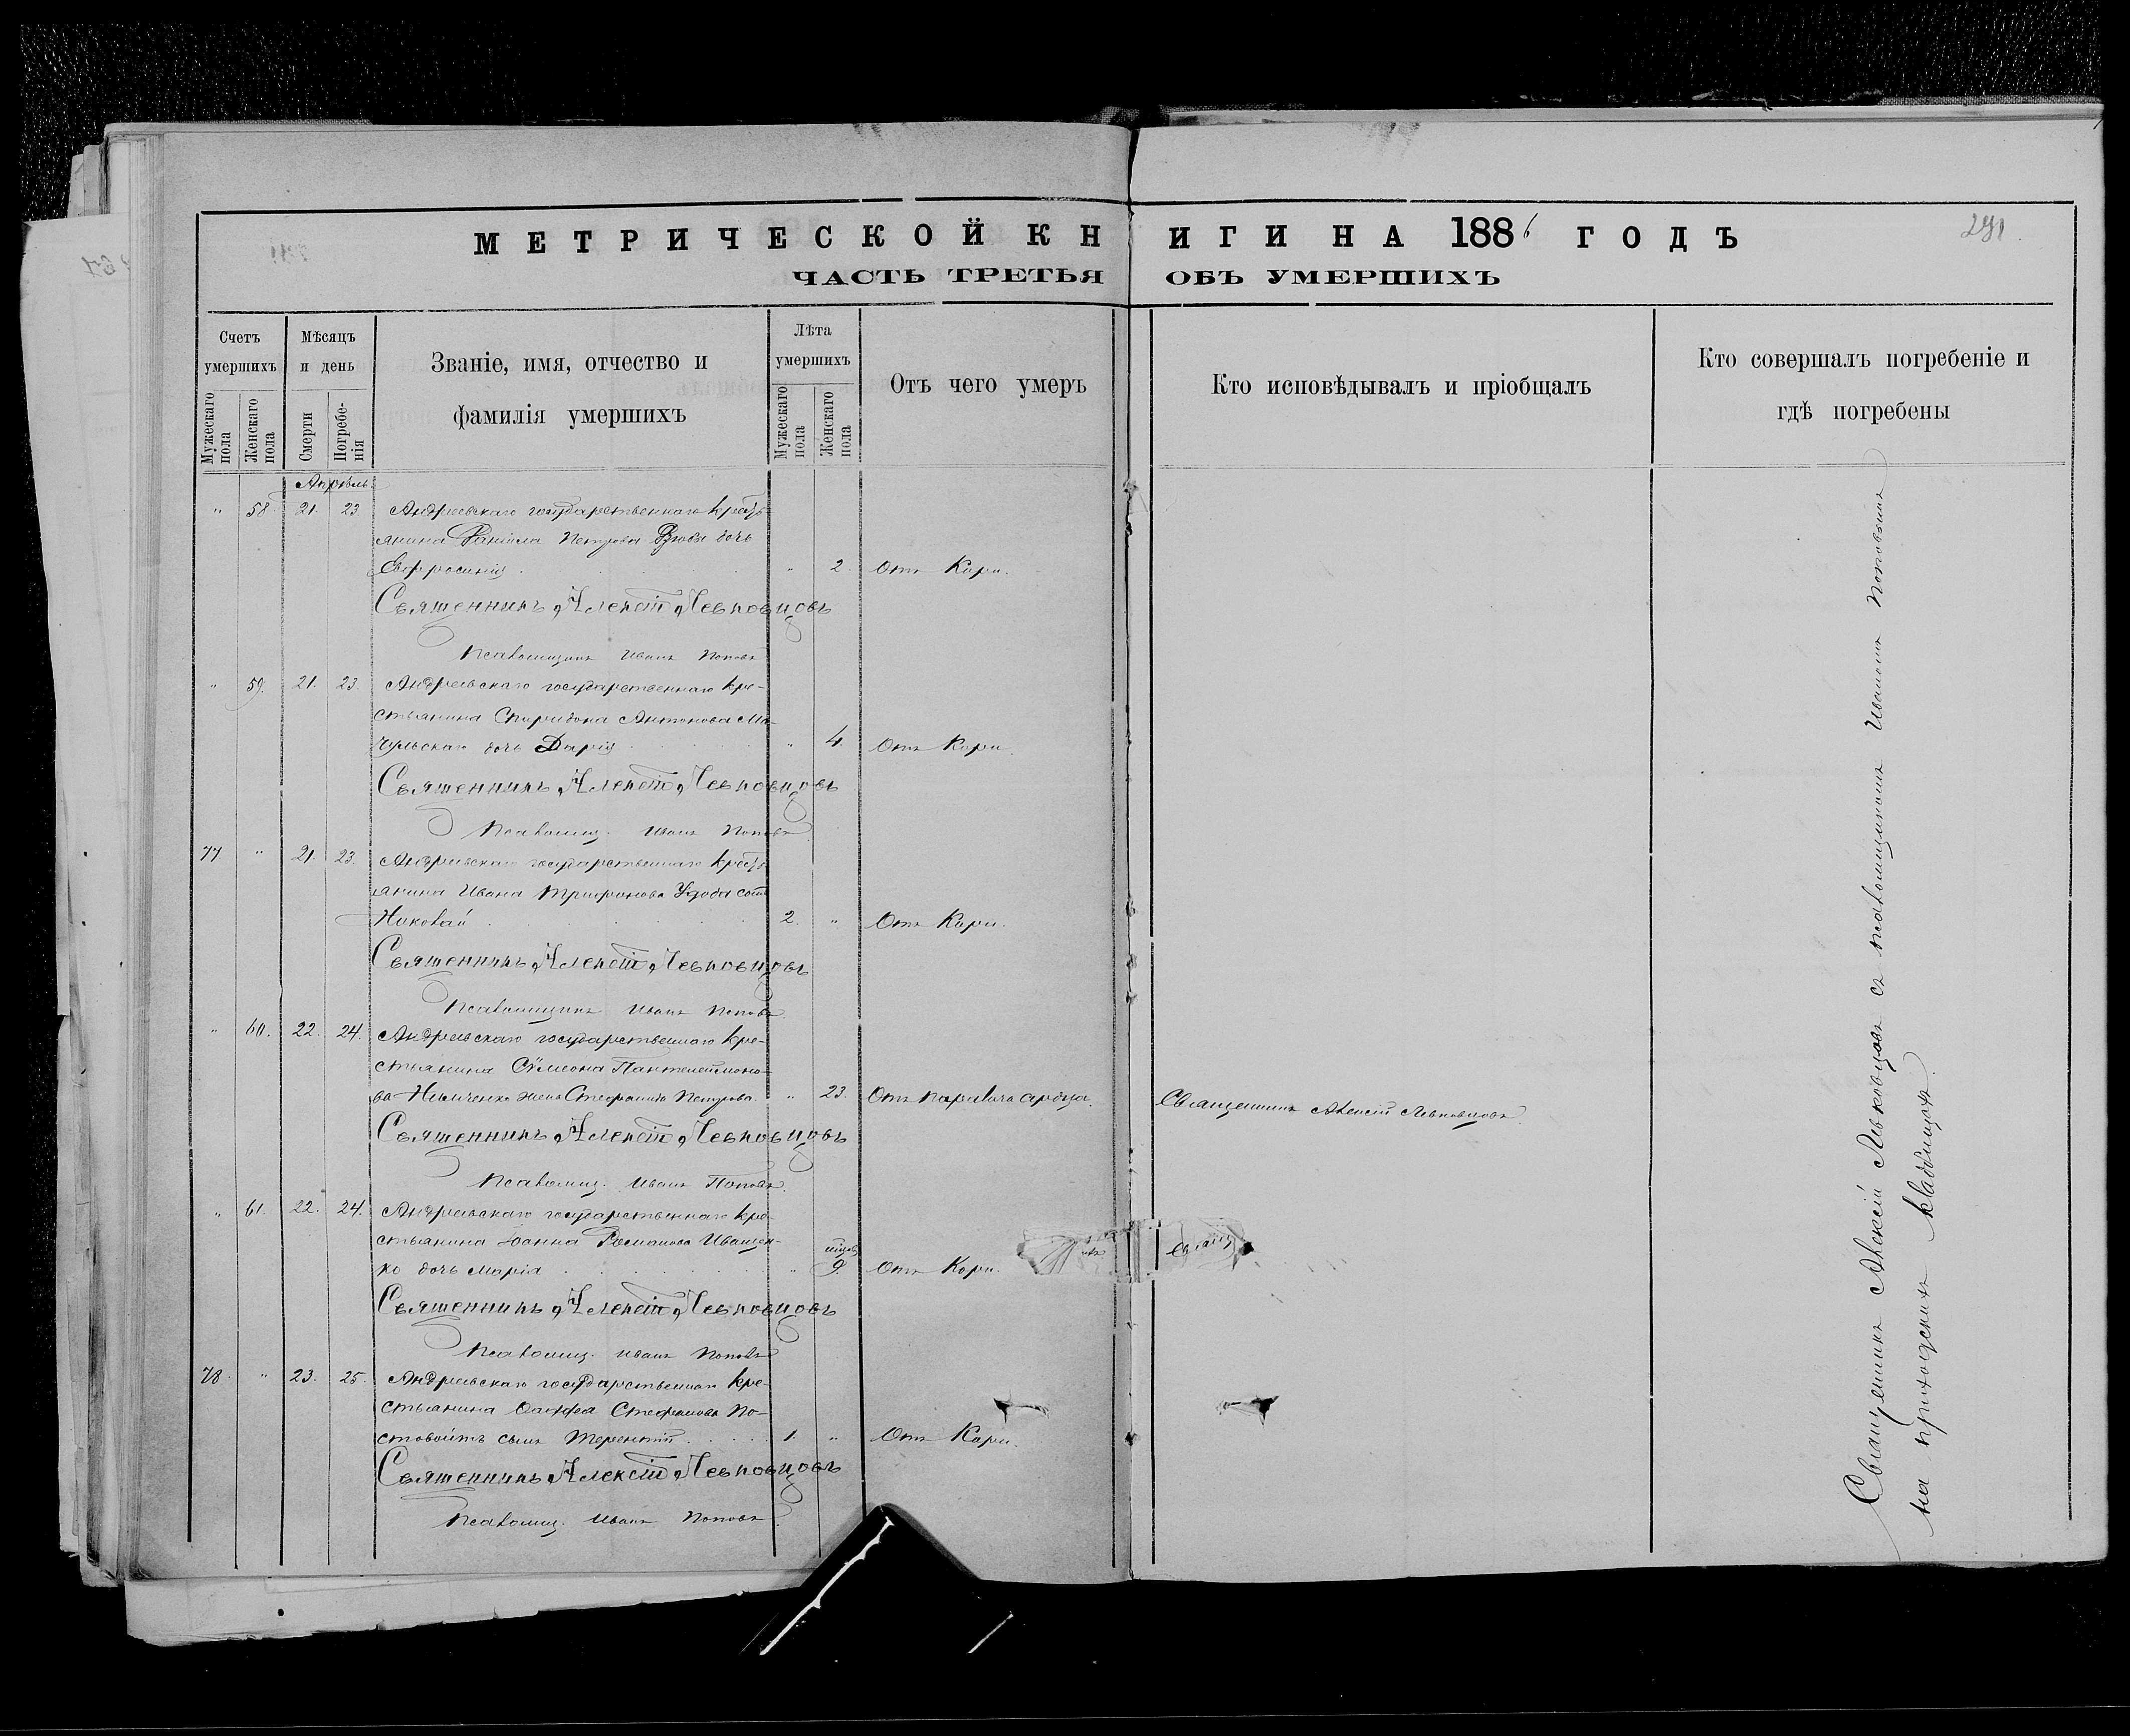 МЕТРИЧЕСКОЙ КНИГИ НА 1886 ГОДЪ
291
ЧАСТЬ ТРЕТЬЯ ОБЪ УМЕРШИХЪ
Счетъ умершихъ
Мужескаго пола
Женскаго пола
Мѣсяцъ и день
Смерти
Погребенія
Званіе, имя, отчество и
фамилія умершихъ
Лѣта умершихъ
Мужескаго пола
Женскаго пола
Отъ чего умеръ
Кто исповѣдывалъ и пріобщалъ
Кто совершалъ погребеніе и
гдѣ погребены
Апрѣль
" 58 21. 23 Андреевскаго государственнаго кресть-
янина Даніила Петрова дочь
Евфросинія " 2 Отъ Кори.
Священникъ Алексій Левковцовъ
Псаломщикъ Иванъ Поповъ
" 59. 21. 23. Андреевскаго государственнаго кре-
стьянина Спиридона Антонова Мо-
чульскаго дочь Дарія " 4. Отъ Кори.
Священникъ Алексій Левковцовъ
Псаломщ. Иванъ Поповъ
77 " 21. 23. Андреевскаго государственнаго кресть-
янина Ивана Трифонова Удода сынъ
Николай 2. " Отъ Кори.
Священникъ Алексій Левковцовъ
Псаломщикъ Иванъ Поповъ.
" 60. 22. 24. Андреевскаго государственнаго кре-
стьянина Сѵмеона Пантелеимоно-
ва жена Стефанида Петрова. " 23. Отъ паралича сердца. Священникъ Алексій Левковцовъ.
Священникъ Алексій Левковцовъ
Псаломщ. Иванъ Поповъ.
" 61. 22. 24. Андреевскаго государственнаго кре-
стьянина Іоанна Романова Иващен-
ко дочь Марія " 9. Отъ Кори.
Священникъ Алексій Левковцовъ
Псаломщ. Иванъ Поповъ
78. " 23. 25. Андреевскаго государственнаго кре-
стьянина Стефанова По-
стовойтъ сынъ Терентій 1. " Отъ Кори.
Священникъ Алексій Левковцовъ
Псаломщ. Иванъ Поповъ.
Священникъ Алексій Левковцовъ съ псаломщикомъ Иваномъ Поповымъ
на приходскихъ кладбищахъ.